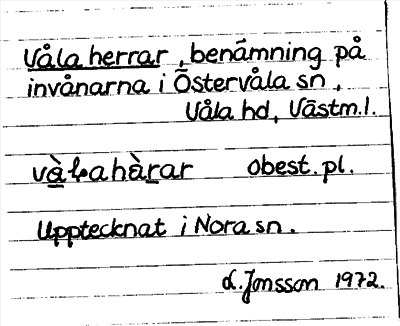 Våla herrar, benämning på
invånarna i Östervåla sn,
Våla hd, Västm.l.
vàƚahàrar obest. pl.
Upptecknat i Nora sn.
L. Jonsson 1972.